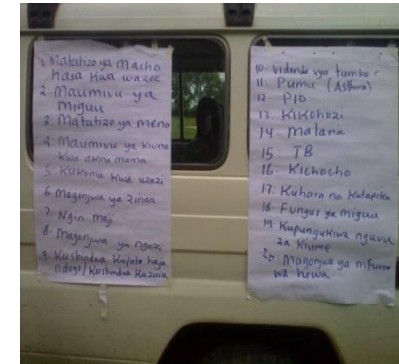 1. Matatizo ya Macho
hasa kwa wazee
2. Maumivu ya
miguu
3. Matatizo ya meno
4. Maumivu ya kiuno
kwa akina mama
5. Kukoma kwa uzazi
6. Magonjwa ya zinaa
7. Ngiri maji
8. Magonjwa ya ngozi
9. Kushindwa kupata haja
ndogo/Kushindwa Kuzuia
10. vidonda vya tumbo
11. Pumu (Asthma)
12. PID
13. Kikohozi
14. Malaria
15. TB
16. Kichocho
17. Kuhara na Kutapika
18. Fungus ya miguu
19. Kupungukiwa nguvu
za kiume
20. Magonjwa ya mfumo
wa hewa